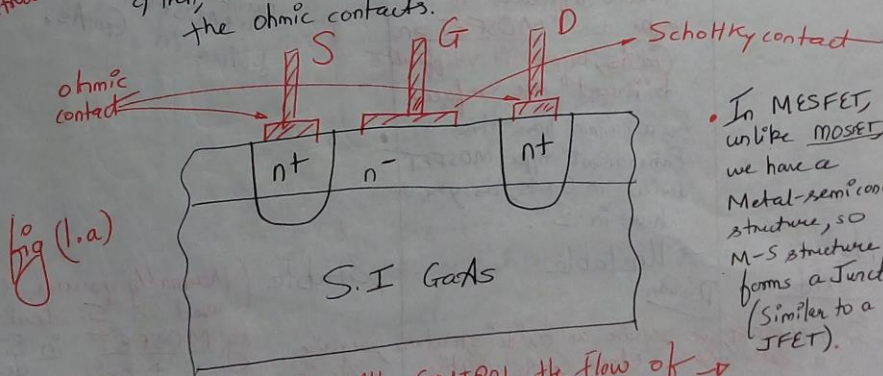 the ohmic contacts.
S
G
D
Schottky contact
ohmic
contact
n+
n-
n+
fig (1.a)
S.I GaAs
• In MESFET,
unlike MOSET,
we have a
Metal-semicon
structure, so
M-S structure
forms a Junct
(Similar to a
JFET).
the flow of